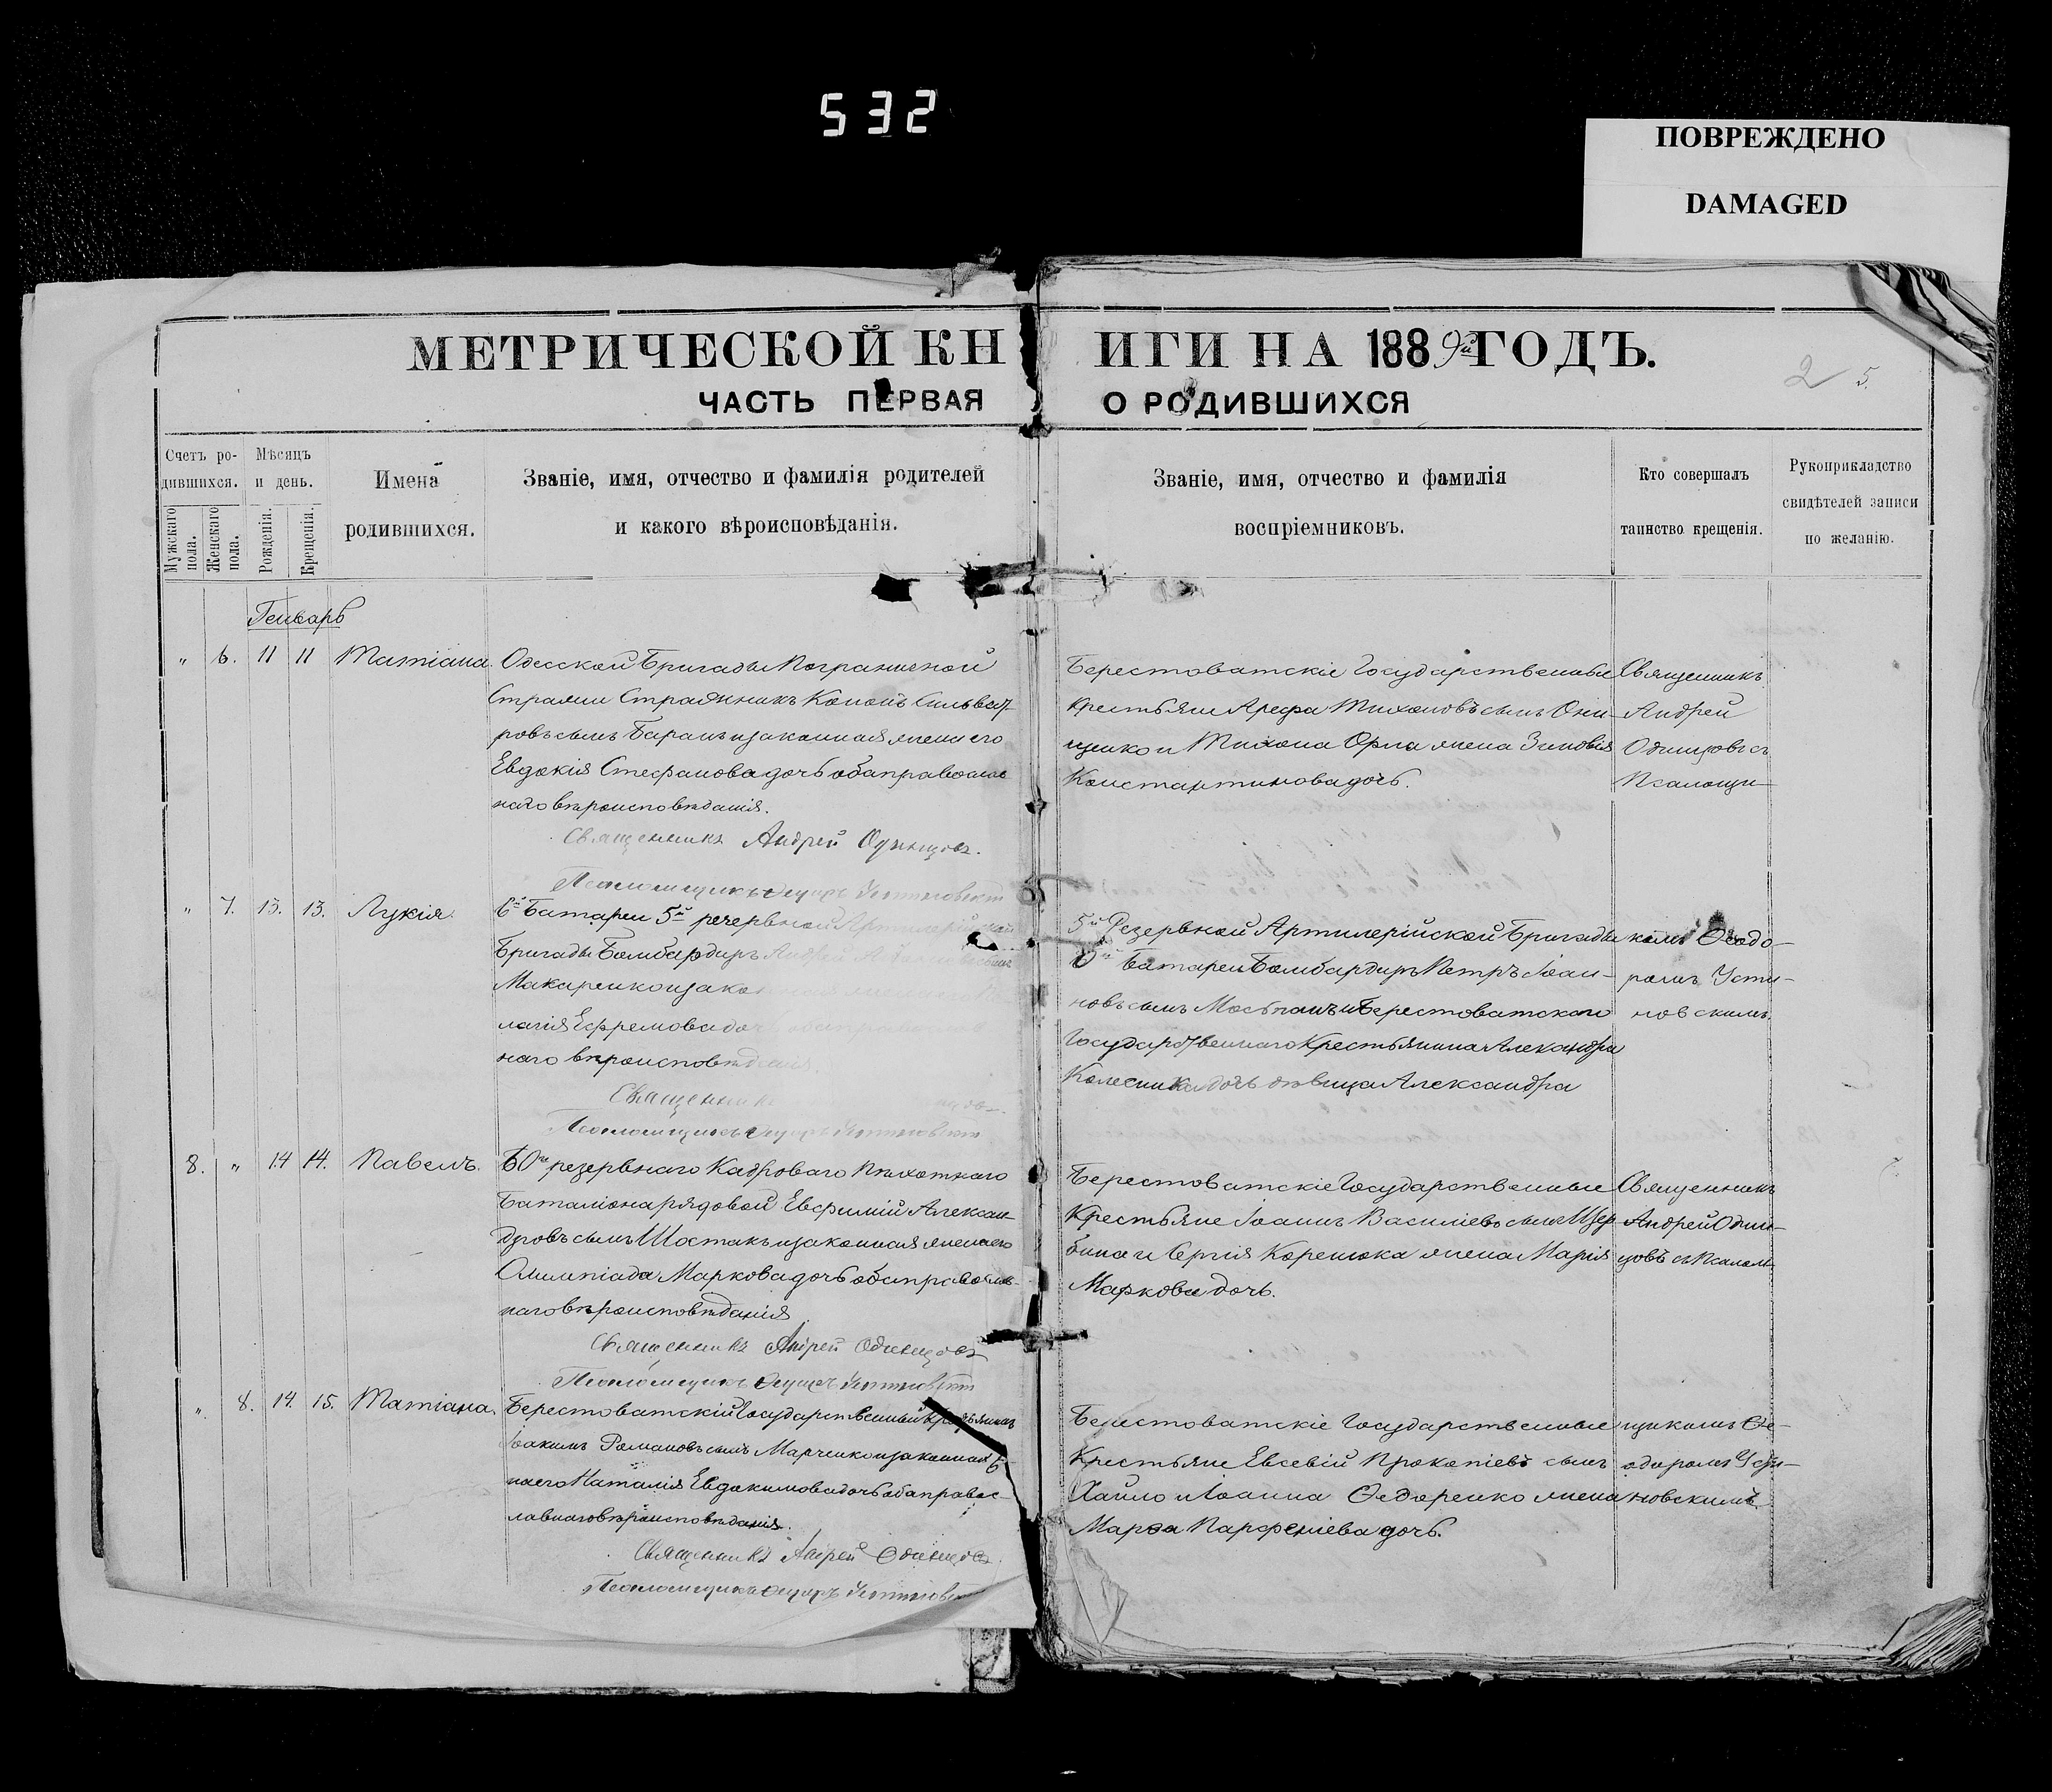 532
ПОВРЕЖДЕНО
DAMAGED
МЕТРИЧЕСКОЙ КНИГИ НА 1889й ГОДЪ.
ЧАСТЬ ПЕРВАЯ О РОДИВШИХСЯ
2 5.
Счетъ ро-
дившихся.
Мужскаго пола.
Женскаго пола.
Мѣсяцъ
и день.
Рожденія.
Крещенія.
Имена
родившихся.
Званіе, имя, отчество и фамилія родителей
и какого вѣроисповѣданія.
Званіе, имя, отчество и фамилія
воспріемниковъ.
Кто совершалъ
таинство крещенія.
Рукоприкладство
свидѣтелей записи
по желанію.
Генварь
" 6. 11 11 Татіана.
Одесской Бригады Пограничной
Стражи Стражникъ Кононъ Сильвест-
ровъ сынъ Баранъ и законная жена его
Евдокія Стефанова дочь оба православ
наго вѣроисповѣданія.
Священникъ Андрей Одинцовъ.
Псаломщикъ Ѳеодоръ Устиновскій
Берестоватскіе Государственные
крестьяне Арефа Тихоновъ сынъ Они-
щенко и Тихона Орла жена Зиновія
Константинова дочь.
Священникъ
Андрей
Одинцовъ съ
Псаломщи-
" 7. 13. 13. Лукія.
6й Батареи 5й резервной Артилерійской
Бригады Бомбардиръ Андрей
Макаренко и зако
лагія Ефремова доч
наго вѣроисповѣданія
Священникъ
Псаломщикъ Ѳеодоръ Устиновскій
5й Резервной Артилерійской Бригады
6й Батареи Бомбардиръ Петръ Іоан-
новъ сынъ Мостпанъ и Берестоватскаго
Государственнаго Крестьянина Александра
Колесника дочь дѣвица Александра
комъ Ѳеодо-
ромъ Усти-
новскимъ.
8. " 14 14. Павелъ.
60го резервнаго Кадроваго Пѣхотнаго
Баталіона рядовой Евфимій Алексан-
дровъ сынъ Шостакъ и законная жена его
Олимпіада Маркова дочь оба православ-
наго вѣроисповѣданія
Священникъ Андрей Одинцовъ
Псаломщикъ Ѳеодоръ Устиновскій
Берестоватскіе Государственные
Крестьяне Іоаннъ Василіевъ сынъ Щер
бина и Сергія Коренюка жена Марія
Маркова дочь.
Священникъ
Андрей Один-
цовъ съ Псалом-
" 8. 14. 15. Татіана.
Берестоватскій Государственный крестьянинъ
Іоакимъ Романовъ сынъ Марченко и законная
на его Наталія Евдокимова дочь оба правос-
лавнаго вѣроисповѣданія.
Священникъ Андрей Одинцовъ.
Псаломщикъ Ѳеодоръ Устиновскій
Берестоватскіе Государственные
Крестьяне Евсевій Прокопіевъ сынъ
Хайло и Іоанна Ѳедоренко жена
Марѳа Парфеніева дочь.
щикомъ Ѳе-
одоромъ Усти-
новскимъ